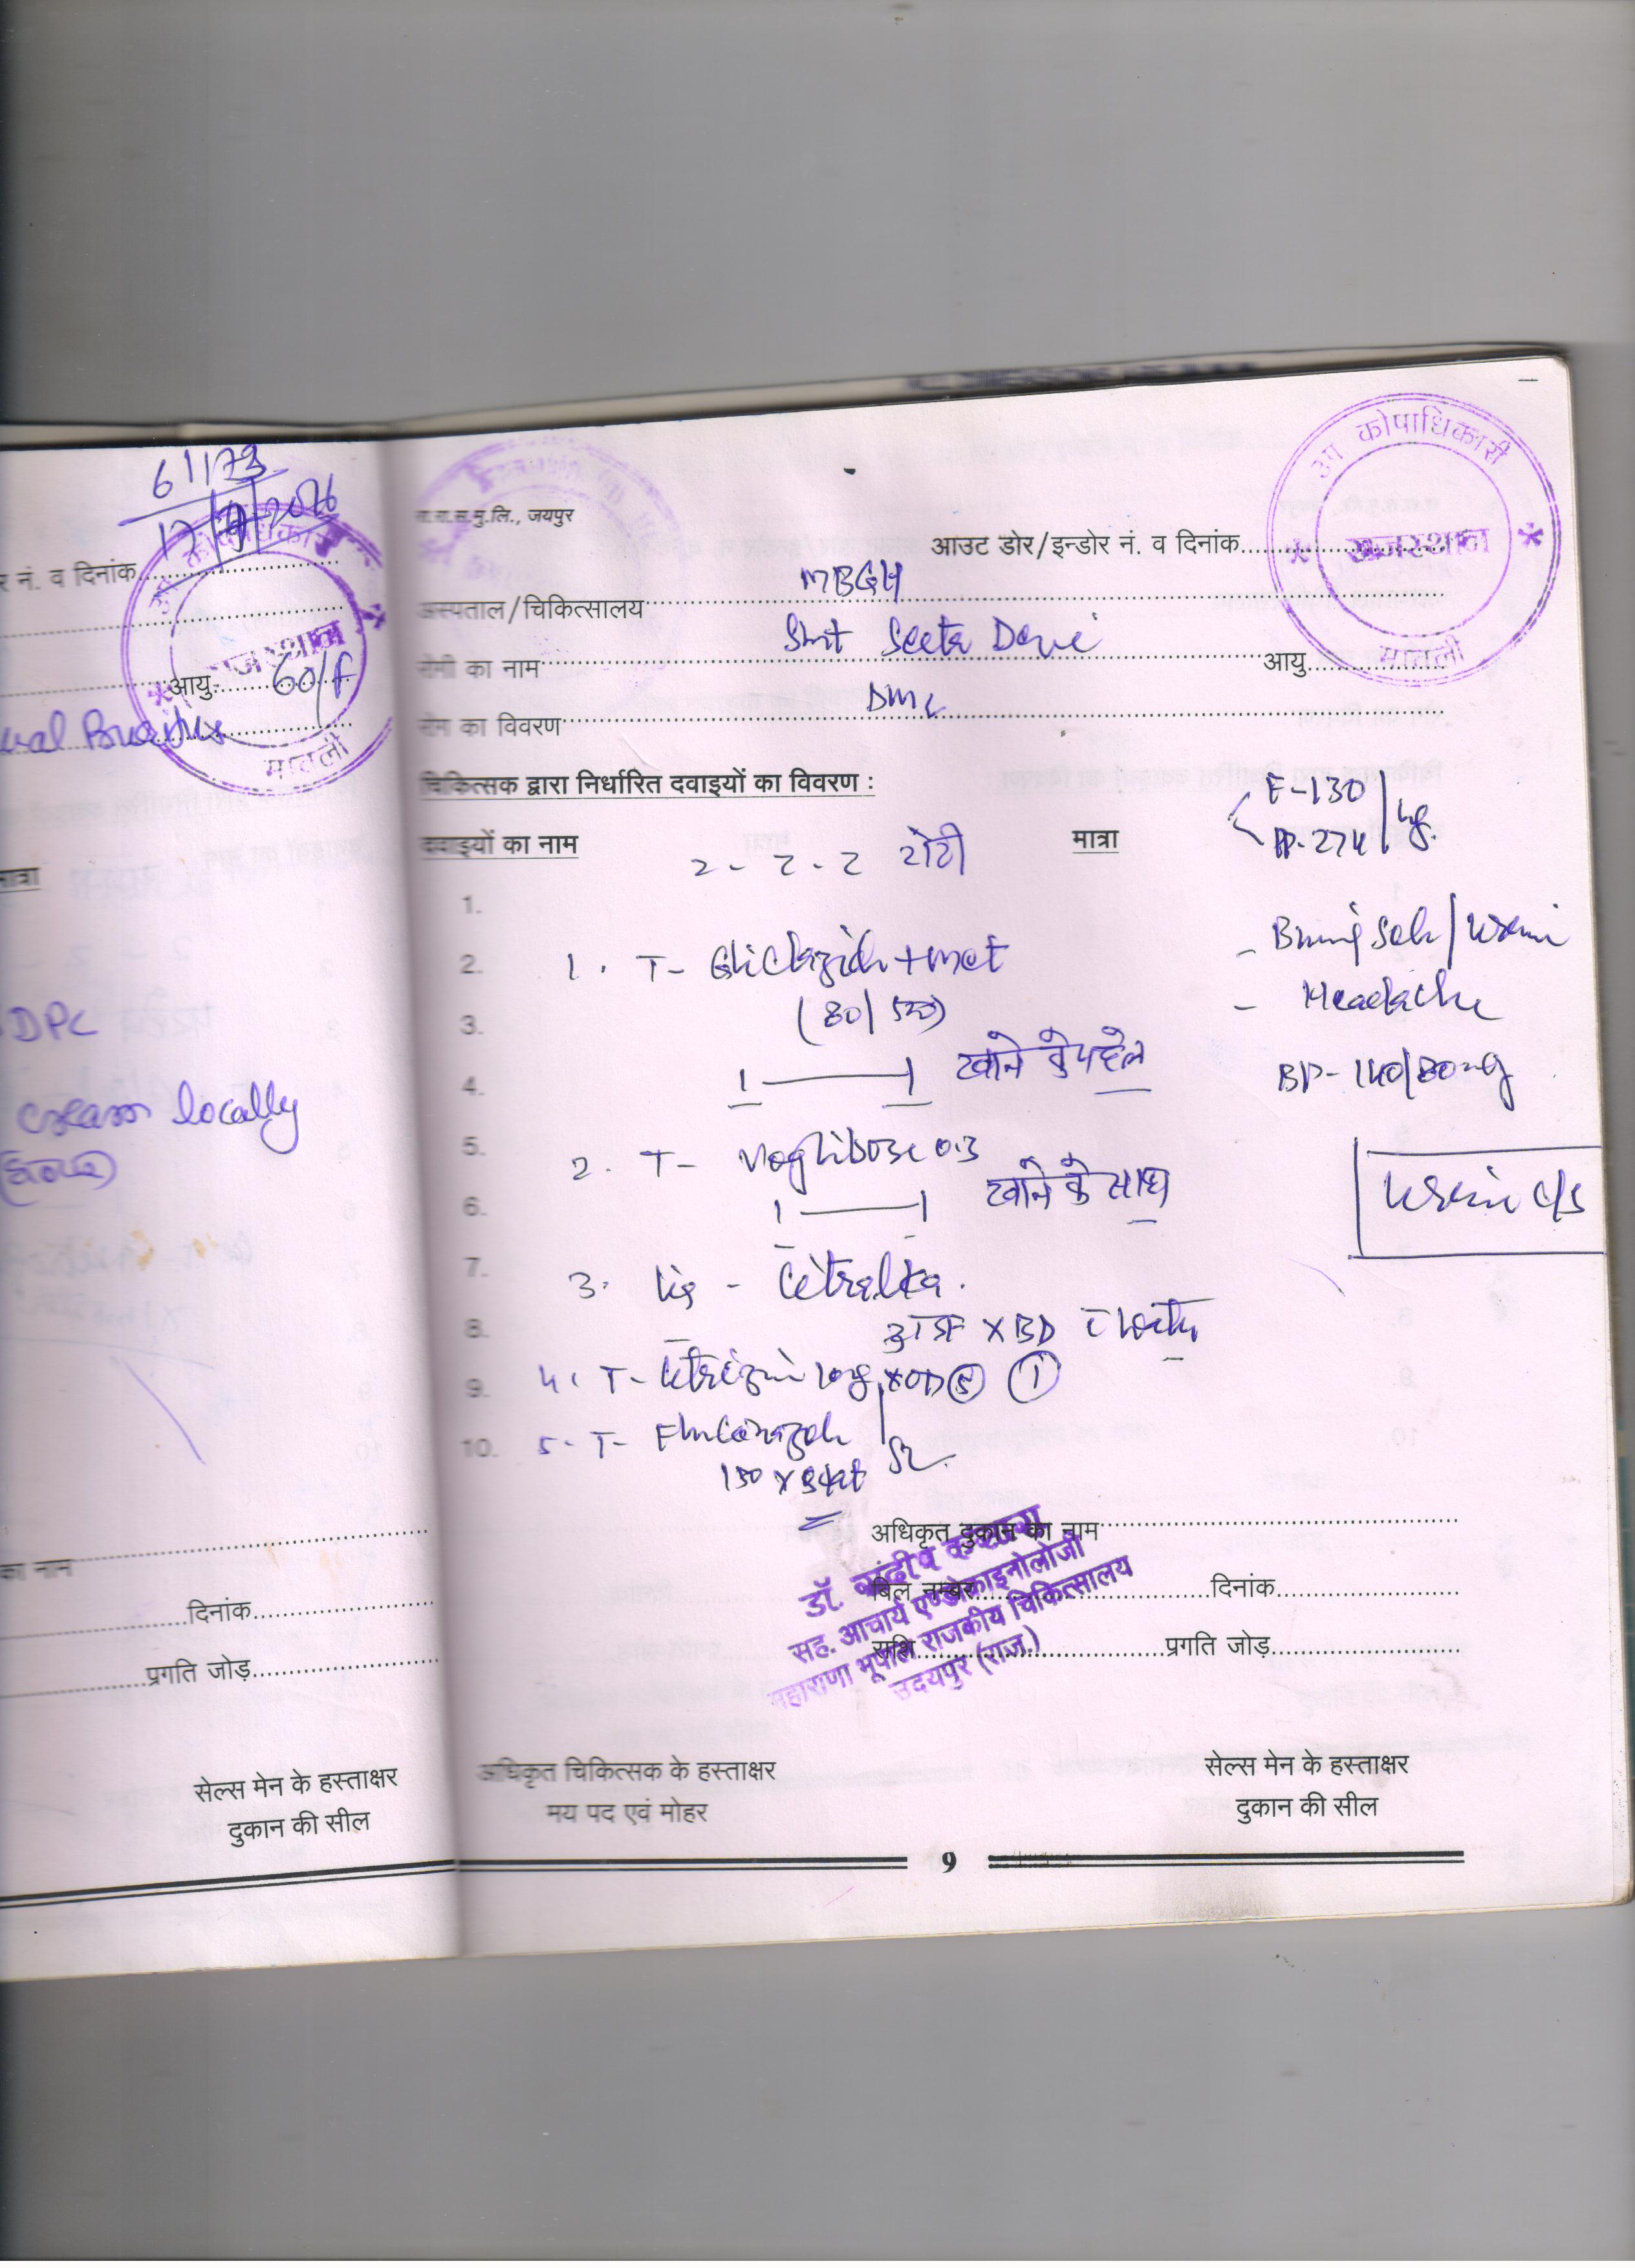 61173
17/9/2016
र नं. व दिनांक
राजस्थान
आयु 60/F
मावली
मात्रा
DPC
cream locally
का नाम
दिनांक
प्रगति जोड़
सेल्स मेन के हस्ताक्षर
दुकान की सील
रा.रा.स.मु.लि., जयपुर
कोषाधिकारी
राजस्थान
मावली
आउट डोर/इन्डोर नं. व दिनांक
अस्पताल/चिकित्सालय MBGH
रोगी का नाम Smt Seeta Devi आयु
रोग का विवरण
चिकित्सक द्वारा निर्धारित दवाइयों का विवरण :
F-130
PP-274
दवाइयों का नाम मात्रा
2-2-2 रोटी
1.
2. 1. T- Gliclazide+met
3. (80/500)
4. 1 — 1 खाने के पहले
5. 2. T- Voglibose 0.3
6. 1 — 1 खाने के साथ
7. 3. Liq - Citralka.
8. x BD
9. 4. T- Cetrizin 10mg x OD
10. 5- T- Fluconazole
150 x
- Headache
BP- 140/80
Urine c/s
अधिकृत दुकान का नाम
बिल नम्बर दिनांक
राशि प्रगति जोड़
डॉ. संदीप
सह. आचार्य एण्डोक्राइनोलोजी
महाराणा भूपाल राजकीय चिकित्सालय
उदयपुर (राज.)
अधिकृत चिकित्सक के हस्ताक्षर
मय पद एवं मोहर
सेल्स मेन के हस्ताक्षर
दुकान की सील
9